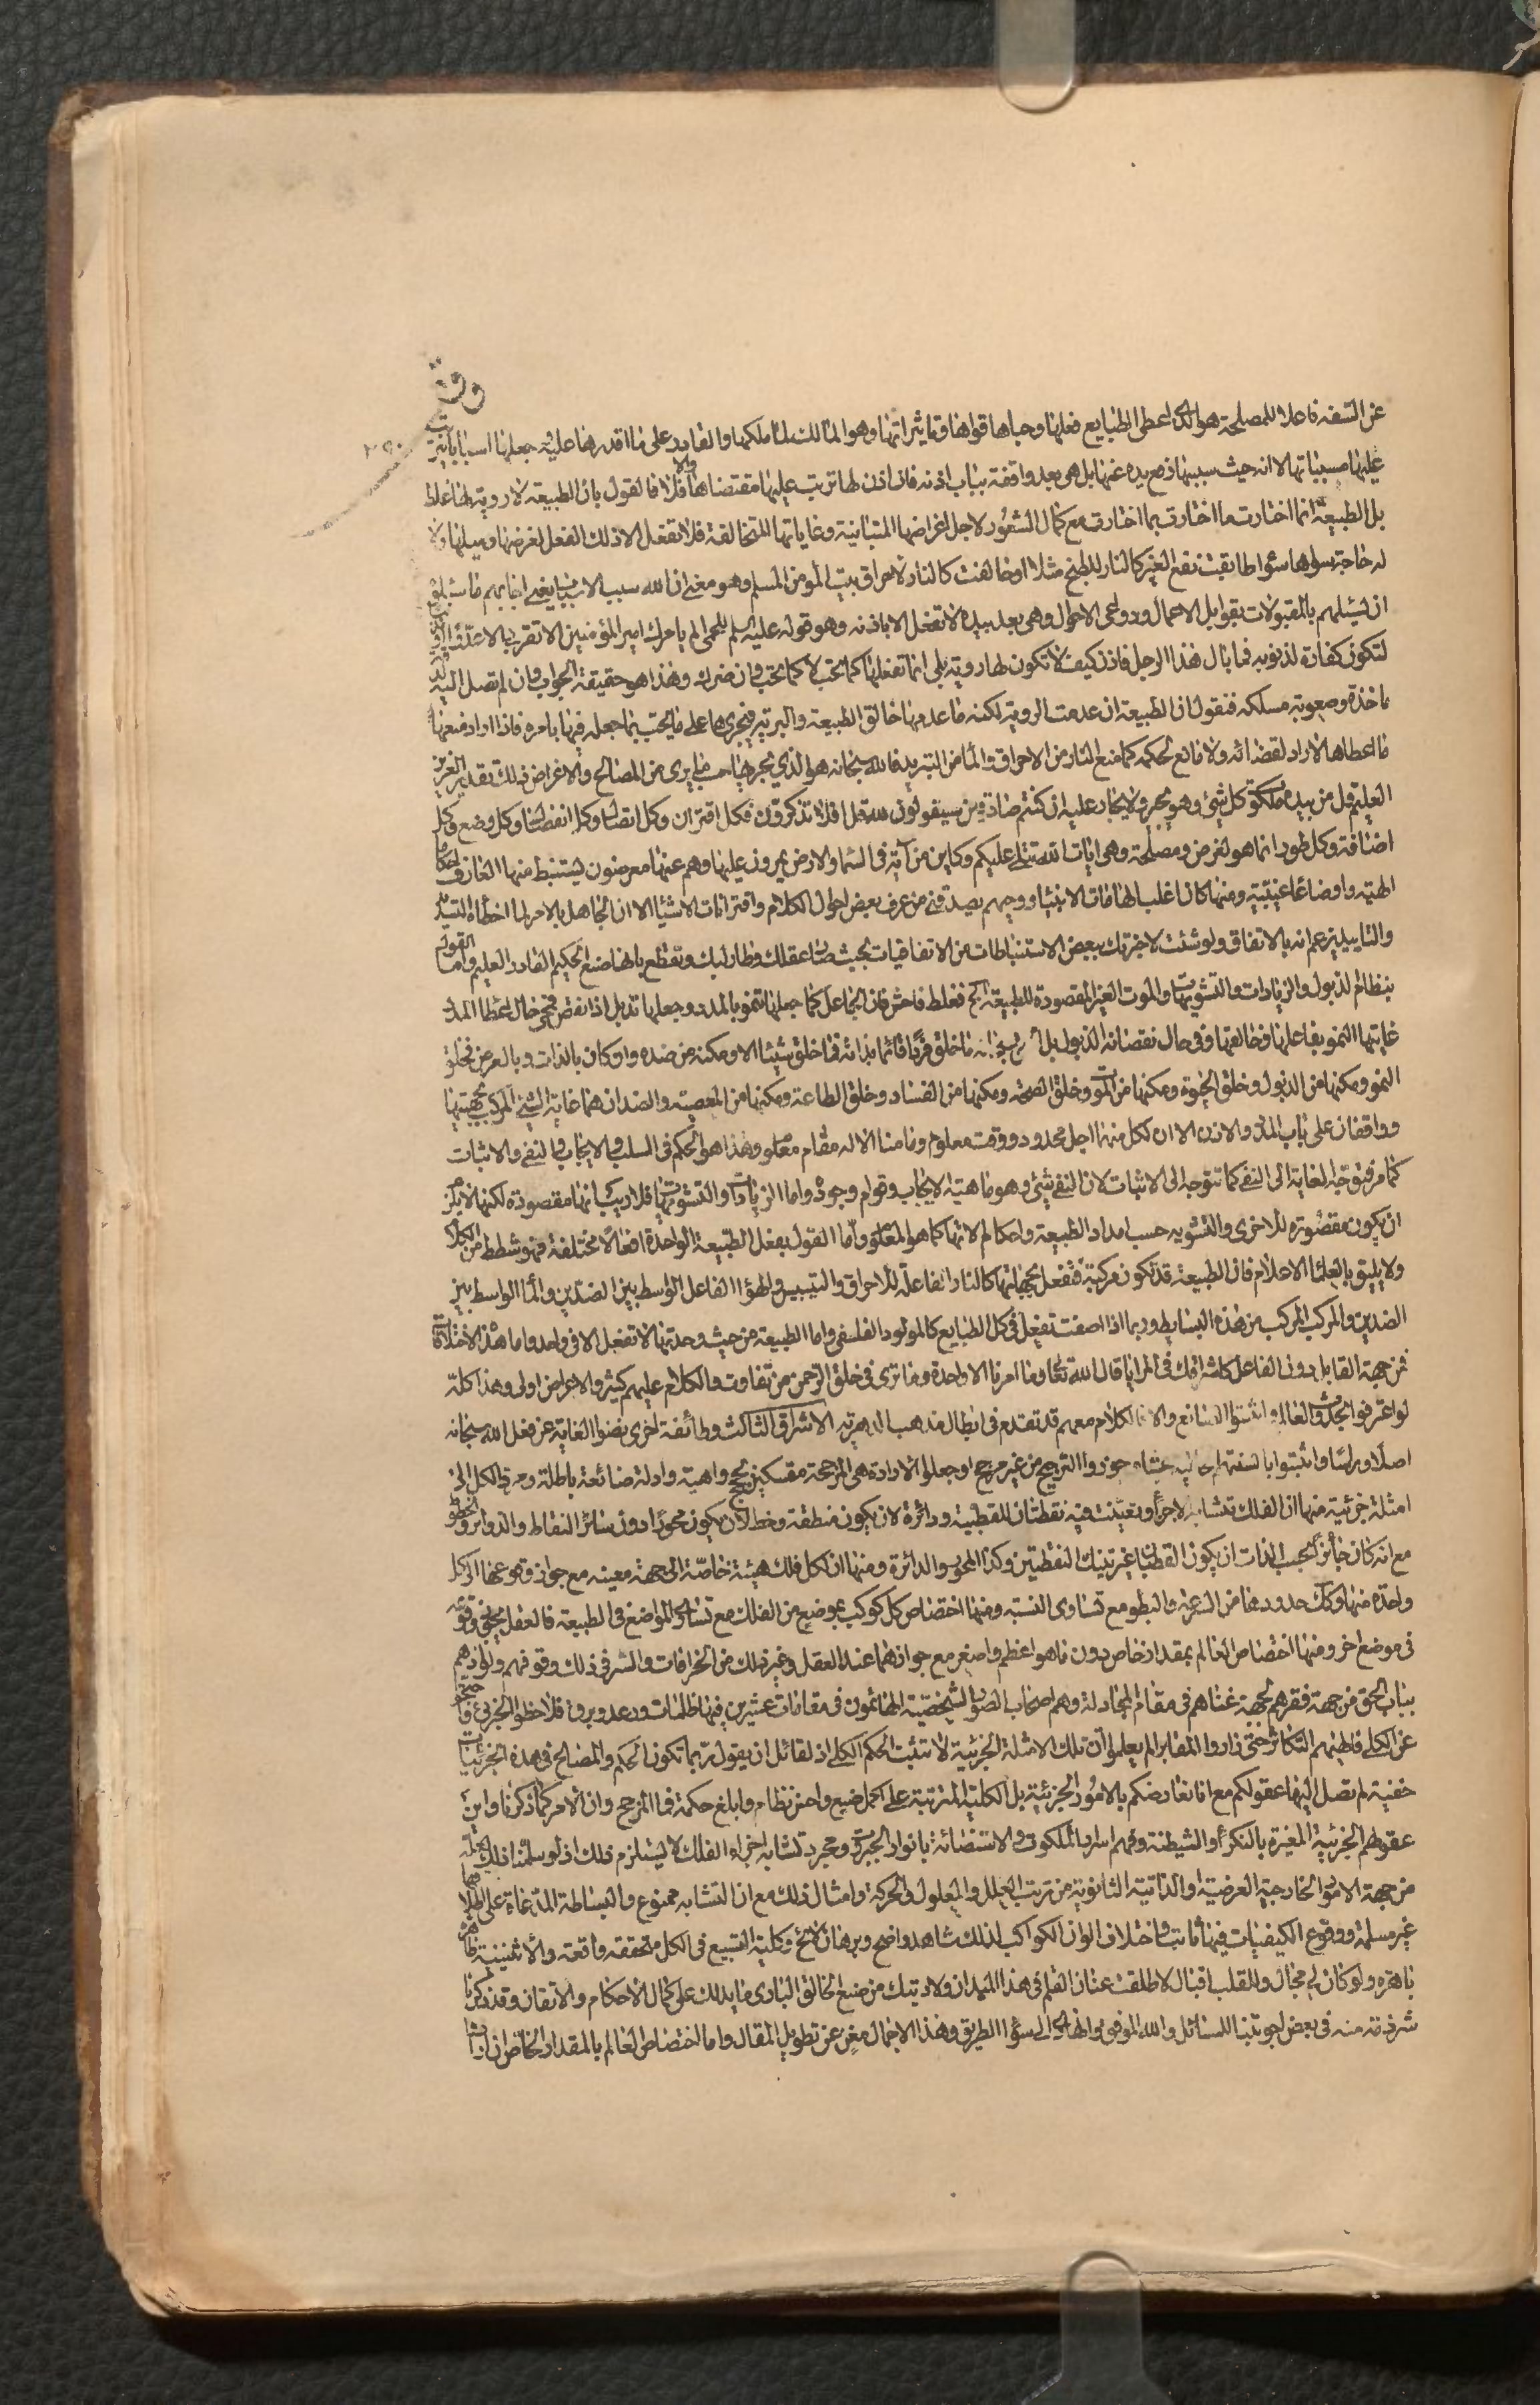 وقف
عن السفه فاعلا للمصلحة هو الذي اعطى الطبايع فعلها وحباها قواها وتاثيراتها وهو المالك لما ملكها والقادر على ما اقدرها عليه جعلها اسبابا يترتب
عليها مسبباتها لا انه حيث سببها رفع يده عنها بل هي بعد واقفة بباب اذنه فان اذن لها ترتب عليها مقتضاها والا فلا فالقول بان الطبيعة لا روية لها غلط
بل الطبيعة انما اختارت ما اختارت بما اختارت مع كمال الشعور لاجل اغراضها المتباينة وغاياتها المتخالفة فلا تفعل الا ذلك الفعل لغرضها وميلها ولا
له حاجة سواها سواء طابقت نفع الغير كالنار للطبخ مثلا او خالفت كالنار لاحراق بيت المؤمن المسلم وهو معنى ان الله سبب الاسباب
ان يسئلهم بالمقبولات بقوابل الاعمال ودواعي الاحوال وهي بعد بيده لا تفعل الا باذنه وهو قوله عليه السلم للحمى الم يامرك امير المؤمنين الا تقربي الا عدوا
لتكون كفارة لذنوبه فما بال هذا الرجل فاذن كيف لا تكون لها روية بلى انما تفعلها كما يحب لا كما تحب وهذا هو حقيقة الجواب وان لم تصل اليه
ماخذه وصعوبة مسلكه فنقول ان الطبيعة ان عدمت الروية لكنه ما عدمها خالق الطبيعة والبرية فيجريها على ما يحب بما جعله فيها بامره فاذا اراد منعها
ما اعطاها لا راد لقضائه ولا مانع لحكمه كما منع النار من الاحراق والماء من التبريد فالله سبحانه هو الذي يجريها حسب ما يرى من المصالح والاغراض ذلك تقدير العزيز
العليم قل من بيده ملكوت كل شيئ وهو يجير ولا يجار عليه ان كنتم صادقين سيقولون لله قل افلا تذكرون فكل اقتران وكل اتصال وكل انفصال وكل وضع وكل
اضافة وكل طور انما هو لغرض ومصلحة وهي ايات الله تتلى عليكم وكاين من آية في السماء والارض يمرون عليها وهم عنها معرضون ليستنبط منها العارف احكاما
الهية واوضاعا غيبية ومنها كان اغلب الهامات الانبياء ووحيهم يصدقني من عرف بعض احوال الكلام واقترانات الاشياء الا ان الجاهل بالامر لما اخطأه التسديد
والتاييد يزعم انه بالاتفاق ولو شئت لاخبرتك ببعض الاستنباطات من الاتفاقيات بحيث طار عقلك وطار لبك وتقطع بانها صنع الحكيم القادر العليم واما القول
بنظام الذبول والزيادات والتشويهات والموت الغير المقصودة للطبيعة الخ فغلط فاحش فان الجاعل كما جعلها تنمو بالمدد وجعلها تذبل اذا نقص ففي حال اعطاء المدد
غايتها النمو بفاعلها وخالقها وفي حال نقصانه الذبول بل سبحانه ما خلق فردا قائما بذاته فما خلق شيئا الا ومكنه من ضده وان كان بالذات وبالعرض فخلق
النمو ومكنها من الذبول وخلق الحيوة ومكنها من الموت وخلق الصحة ومكنها من الفساد وخلق الطاعة ومكنها من المعصية والضدان هما غاية الشيئ المركب بجهتيها
وواقفان على باب المدد والاذن الا ان لكل منهما اجل محدود ووقت معلوم وما منا الا له مقام معلوم وهذا هو الحكم في السلب والايجاب والنفي والاثبات
كما مر فتوجه الغاية الى النفي كما تتوجه الى الاثبات لان النفي شيئ وهو ماهية الايجاب وقوام وجوده واما الزيادات والتشويهات فلا ريب انها مقصودة لكنها لا يلزم
ان يكون مقصودة للاخرى والتشويه حسب امداد الطبيعة واحكام لاتها كما هو المعلوم واما القول بفعل الطبيعة الواحدة افعالا مختلفة فهو شطط من الكلام
ولا يليق بالعلماء الاعلام فان الطبيعة قد تكون مركبة فتفعل بجهاتها كالنار الفاعلة للاحراق والتيبيس والهواء الفاعل الواسط بين الضدين والماء الواسط بين
الضدين والمركب المركب من هذه البسايط وربما اذا صفت تفعل في كل الطبايع كالمولود الفلسفي واما الطبيعة من حيث وحدتها لا تفعل الا في واحد واما هذه الاختلافات
فمن جهة القابل دون الفاعل كاشراقك في المرايا قال الله تعالى وما امرنا الا واحدة وما ترى في خلق الرحمن من تفاوت والكلام عليهم كثير والاعراض اولى وهذا كله
لو اعترفوا بحدوث العالم واثبتوا الصانع والا فالكلام معهم قد تقدم في ابطال مذهب الدهرية الاشراق الثالث وطائفة اخرى نفوا الغاية عن فعل الله سبحانه
اصلا وراسا واثبتوا بالسنتهم جوزوا الترجيح من غير مرجح او جعلوا الارادة هي المرجحة متمسكين بحجج واهية وادلة ضائعة باطلة ومرجع الكل الى
امثلة جزئية منها ان الفلك تشابه الاجزاء وتعينت فيه نقطتان للقطبية ودائرة لان يكون منطقة وخط لان يكون محورا دون سائر النقاط والدوائر والخطوط
مع انه كان جائزا بحسب الذات ان يكون القطبان غير تينك النقطتين وكذا المحور والدائرة ومنها ان لكل فلك هيئة خاصة الى جهة معينة مع جواز وقوعها الى كل
واحدة منها وكك حدودها من السرعة والبطوء مع تساوى النسبة ومنها اختصاص كل كوكب بموضع من الفلك مع تساوي المواضع في الطبيعة فالعقل يجوز وقوعه
في موضع اخر ومنها اختصاص العالم بمقدار خاص دون ما هو اعظم واصغر مع جوازهما عند العقل وغير ذلك من الخرافات والسر في ذلك وقوفهم ولواذهم
بباب الحق من جهة فقرهم لا جهة غناهم في مقام المجادلة وهم اصحاب الصور الشخصية الهائمون في مقامات عشيرين فيها ظلمات ورعد وبرق فلاحظوا الجزئي
عن الكلي فالهيهم التكاثر حتى زاروا المقابر الم يعلموا ان تلك الامثلة الجزئية لا تثبت الحكم الكلي اذ لقائل ان يقول ربما تكون الحكم والمصالح في هذه الجزئيات
خفية لم تصل اليها عقولكم مع انا نعارضكم بالامور الجزئية بل الكلية المترتبة على اكمل صنيع واحسن نظام وابلغ حكمة فما المرجح وان الامر كما ذكرنا واين
عقولهم الجزئية المغيرة بالنكراء والشيطنة وفهم اسرار الملكوت والاستضائة بانوار الجبروت ومجرد تشابه اجزاء الفلك لا يستلزم ذلك اذ لو سلمنا ذلك
من جهة الامور الخارجية العرضية او الذاتية الثانوية من ترتب العلل والمعلول في الحركة وامثال ذلك مع ان التشابه ممنوع والبساطة المدعاة على اطلاقها
غير مسلمة ووقوع الكيفيات فيها ثابت واختلاف الوان الكواكب لذلك شاهد واضح وبرهان لائح وكلية التسبيع في الكل متحققة واقعة والاثنينية ظاهرة
باهرة ولو كان لي مجال وللقلب اقبال لاطلقت عنان القلم في هذا الميدان ولاريتك من صنع الخالق البارى ما يدلك على كمال الاحكام والاتقان وقد ذكرنا
شرذمة منه في بعض اجوبتنا للمسائل والله الموفق والهادي الى سواء الطريق وهذا الاجمال مغن عن تطويل المقال واما اختصاص العالم بالمقدار الخاص